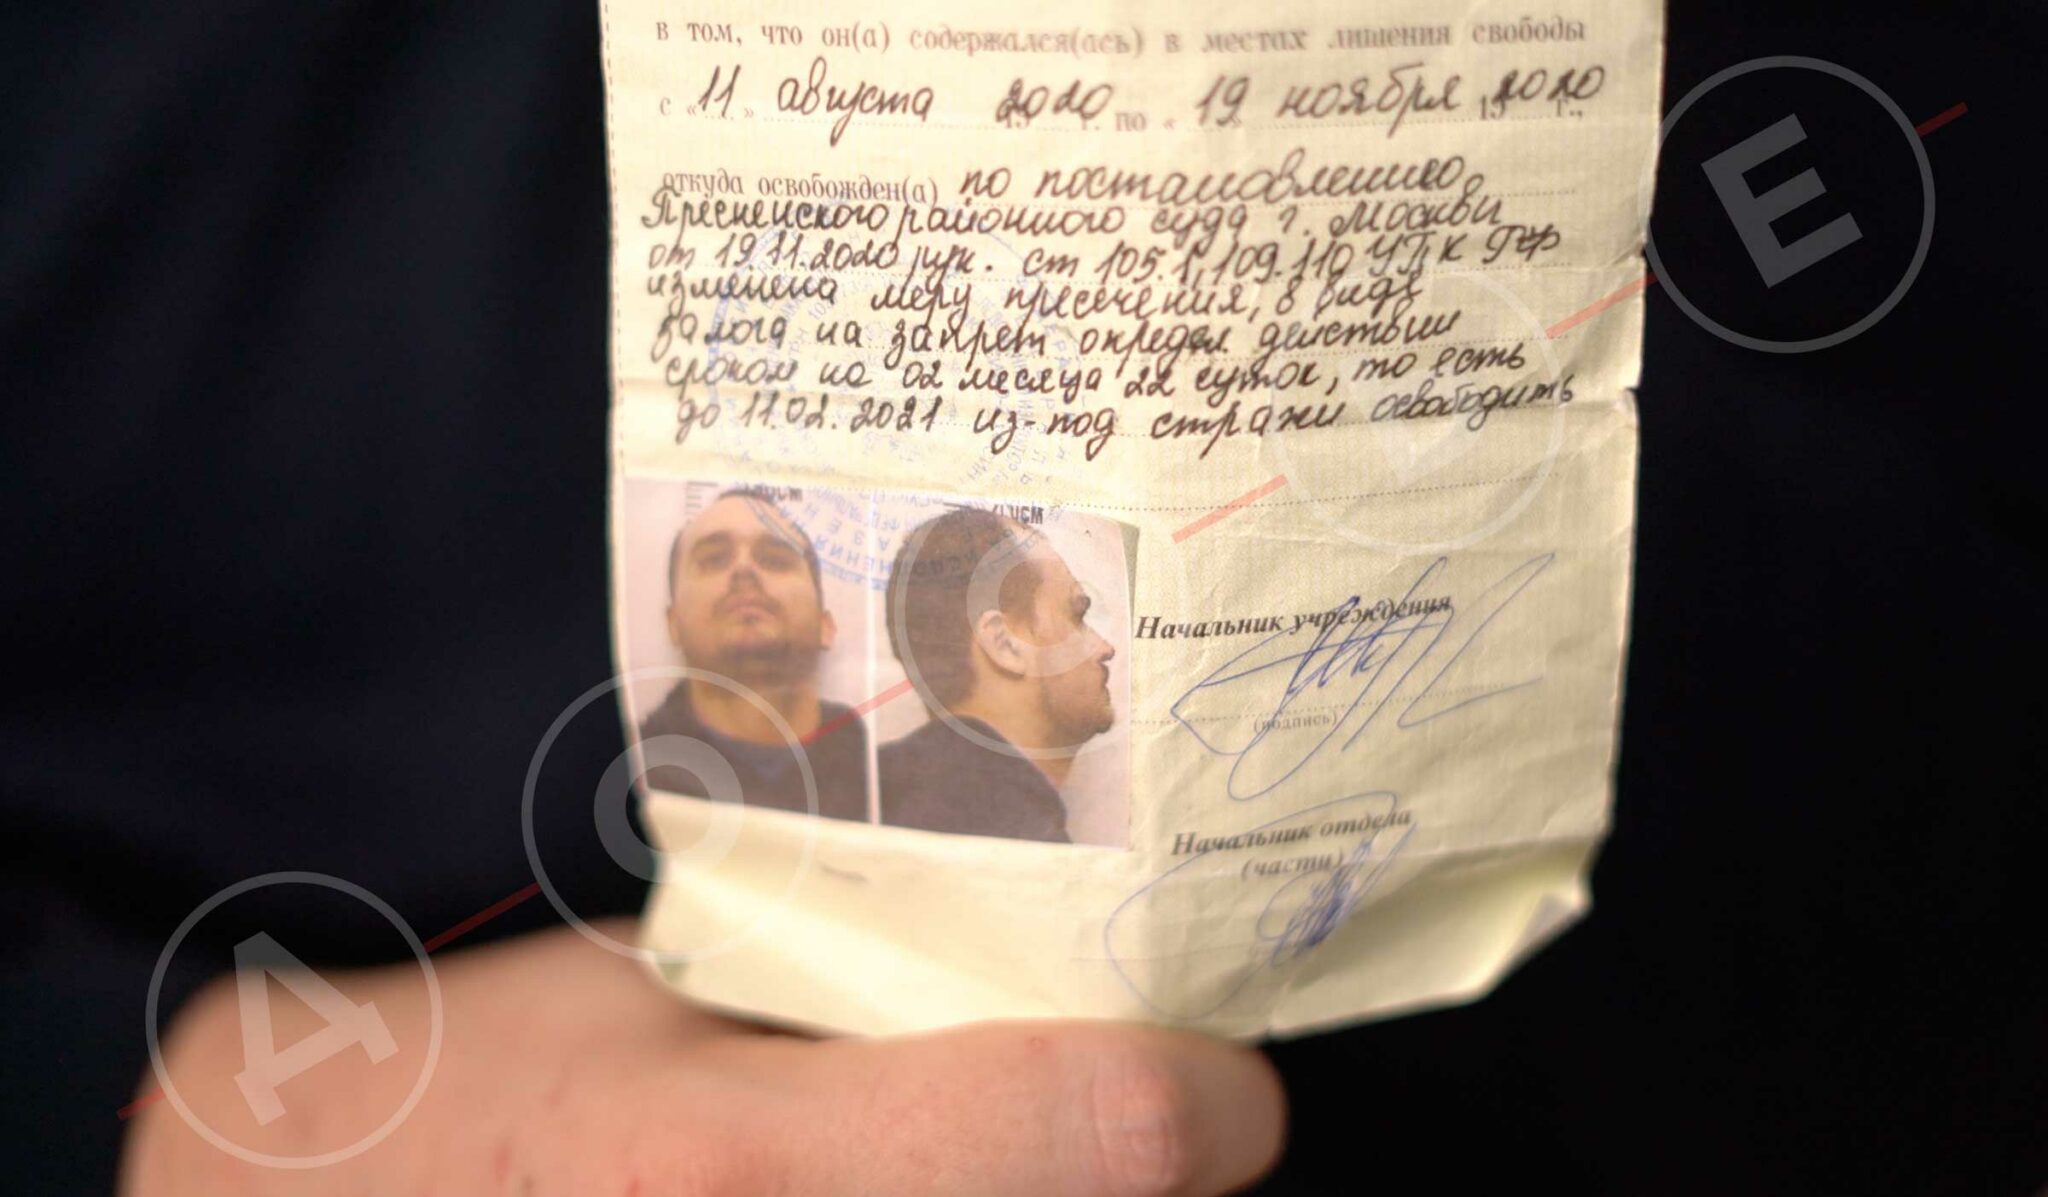 в том, что он(а) содержался(ась) в местах лишения свободы
с «11» августа 2020 г. по «19» ноября 2020 г.,
откуда освобожден(а) по постановлению
Пресненского районного суда г. Москвы
от 19.11.2020 рук. ст 105.1, 109.110 УПК РФ
изменена меру пресечения, в виде
залога на запрет определ. действий
сроком на 02 месяца 22 суток, то есть
до 11.02.2021 из-под стражи освободить
Начальник учреждения
(подпись)
Начальник отдела
(части)
ДОСЬЕ